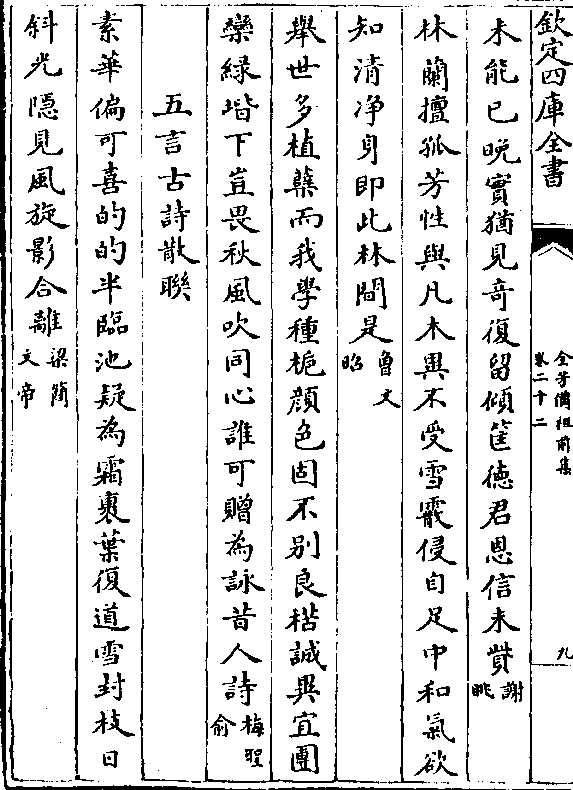 欽定四庫全書
全芳備祖前集
卷二十二
九
未能已晩實猶見竒復留傾筐徳君恩信未貲謝朓
林蘭擅孤芳性與凡木異不受雪霰侵自足中和氣欲
知清净身即此林間是魯文昭
舉世多植蘖而我學種梔顔色固不别良楛誠異宜團
欒緑堦下豈畏秋風吹同心誰可贈為詠昔人詩梅聖俞
五言古詩散聯
素華偏可喜的的半臨池疑為霜裹葉復道雪封枝日
斜光隠見風旋影合離梁簡文帝